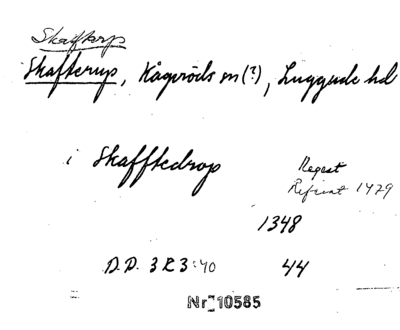 Skaftarp
Skafterup, Kågeröds sn(?), Luggude hd
i Skafftedrop
Regest
Refereat 1479
1348
D.D. 3 R 3:40 44
Nr 10585